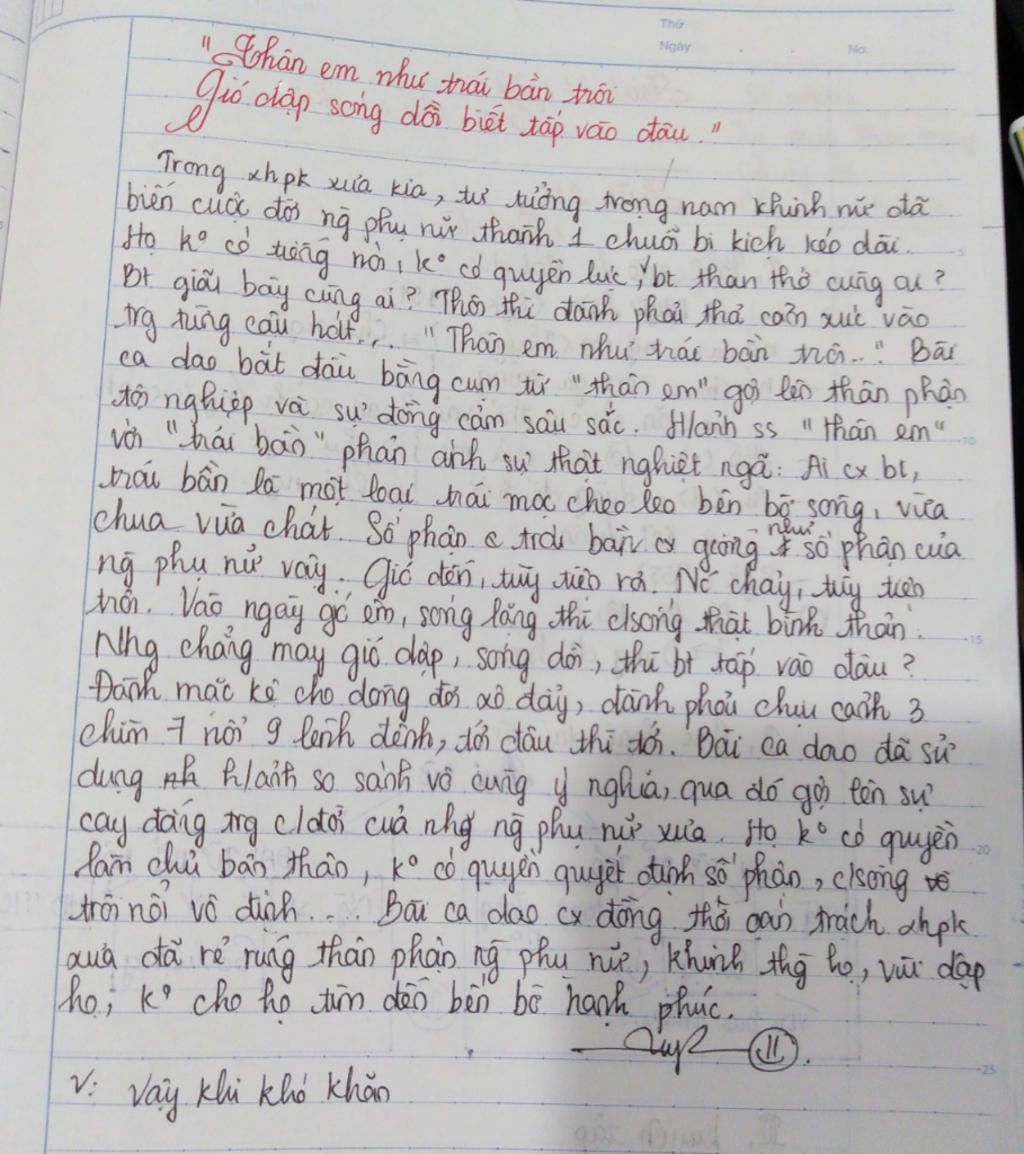 Thứ
Ngày . . No.
"Thân em như trái bần trôi
Gió dập sóng dồi biết tấp vào đâu."
Trong xhpk xưa kia, tư tưởng trọng nam khinh nữ đã
biến cuộc đời ng̃ phụ nữ thành 1 chuỗi bi kịch kéo dài.
Họ k° có tiếng nói, k° có quyền lực, v bt than thở cùng ai?
Bt giãi bày cùng ai? Thôi thì đành phải thả cảm xúc vào
trg từng câu hát... "Thân em như trái bần trôi.." Bài
ca dao bắt đầu bằng cụm từ "thân em" gợi lên thân phận
tội nghiệp và sự đồng cảm sâu sắc. H/ảnh ss "thân em"
với "trái bần" phản ánh sự thật nghiệt ngã: Ai cx bt,
trái bần là một loại trái mọc cheo leo bên bờ sông, vừa
chua vừa chát. Số phận c trái bần cx giống như số phận của
ng̃ phụ nữ vậy. Gió đến, tùy tiện rơi. Nc chảy, tùy tiện
trôi. Vào ngày gió êm, sóng lặng thì c/sống thật bình thản.
Nhg chẳng may gió dập, sóng dồi, thì bt tấp vào đâu?
Đành mặc kệ cho dòng đời xô đẩy, đành phải chịu cảnh 3
chìm 7 nổi 9 lênh đênh, tới đâu thì tới. Bài ca dao đã sử
dụng h/ảnh so sánh vô cùng ý nghĩa, qua đó gợi lên sự
cay đắng trg c/đời của nhg̃ ng̃ phụ nữ xưa. Họ k° có quyền
làm chủ bản thân, k° có quyền quyết định số phận, c/sống
trôi nổi vô định.... Bài ca dao cx đồng thời oán trách xhpk
xưa đã rẻ rúng thân phận ng̃ phụ nữ, khinh thg̃ họ, vùi dập
họ, k° cho họ tìm đến bến bờ hạnh phúc.
V: Vậy khi khó khăn